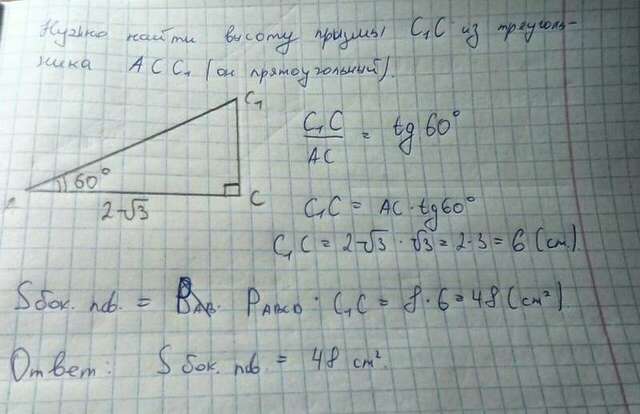 Нужно найти высоту призмы C₁C из треуголь-
ника ACC₁ (он прямоугольный).
C₁
60°
C
2√3
C₁C / AC = tg 60°
C₁C = AC · tg 60°
C₁C = 2√3 · √3 = 2·3 = 6 (см)
Sбок. пов. = P_ABCD · C₁C = 8 · 6 = 48 (см²).
Ответ: Sбок. пов. = 48 см².